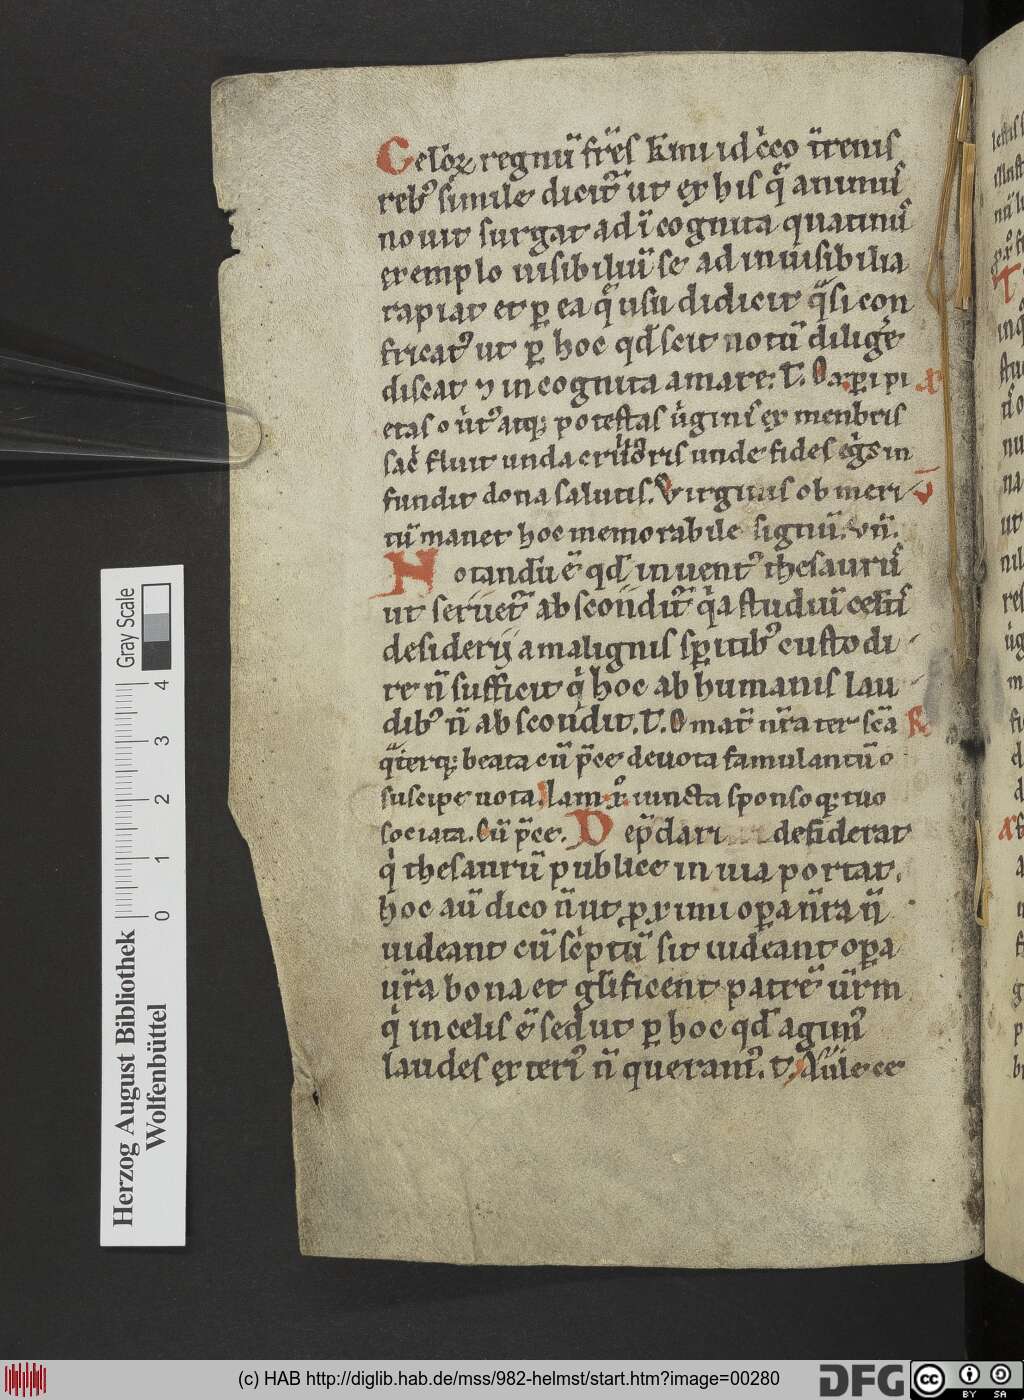 Celoꝝ regnū fr̄es k̄mi idc̓co t̄renis
reb⁹ simile dicit᷑ ut ex his q̄ animus
nouit surgat ad īcognita quatinus
exemplo uisibiliū se ad inuisibilia
rapiat et ꝑ ea q̄ usu didicit q̄si con
fricat⁹ ut ꝑ hoc qd̄ scit notū diligẽ
discat ⁊ incognita amare. T. O ꝑpi pi
etas o ut⁹ atqꝫ potestas ůginis ex menbris
sac̓ fluit unda cruoris unde fides eg̓s in
fundit dona salutis. Virginis ob meri
tū manet hoc memorabile signū. Vn̄.
Notandū ē qd̄ inuent⁹ thesaurus
ut seruet᷑ abscondit᷑ q̓a studiū celesti
desiderij a malignis sp̄itib⁹ custodi
re n̄ sufficit q̓ hoc ab humanis lau
dib⁹ n̄ abscondit. T. O mat̄ nr̄a ter sc̄a
q̄terqꝫ beata cū p̄ce deuota famulantū
suscipe uota. Iam xp̄o iuncta sponsoqꝫ tuo
sociata. Cū p̄ce. Dep̄dari desiderat
q̓ thesaurū publice in uia portat.
hoc aū dico n̄ ut ꝓximi oꝑa nr̄a n̄
uideant cū sc̓ptū sit uideant oꝑa
ur̄a bona et gl̄ificent patrē ur̄m
q̓ in celis ē sed ut ꝑ hoc qd̄ agim⁹
laudes exteri⁹ n̄ queram⁹. T. Aule ce
Gray Scale
0 1 2 3 4
Herzog August Bibliothek
Wolfenbüttel
(c) HAB http://diglib.hab.de/mss/982-helmst/start.htm?image=00280
DFG
CC BY SA